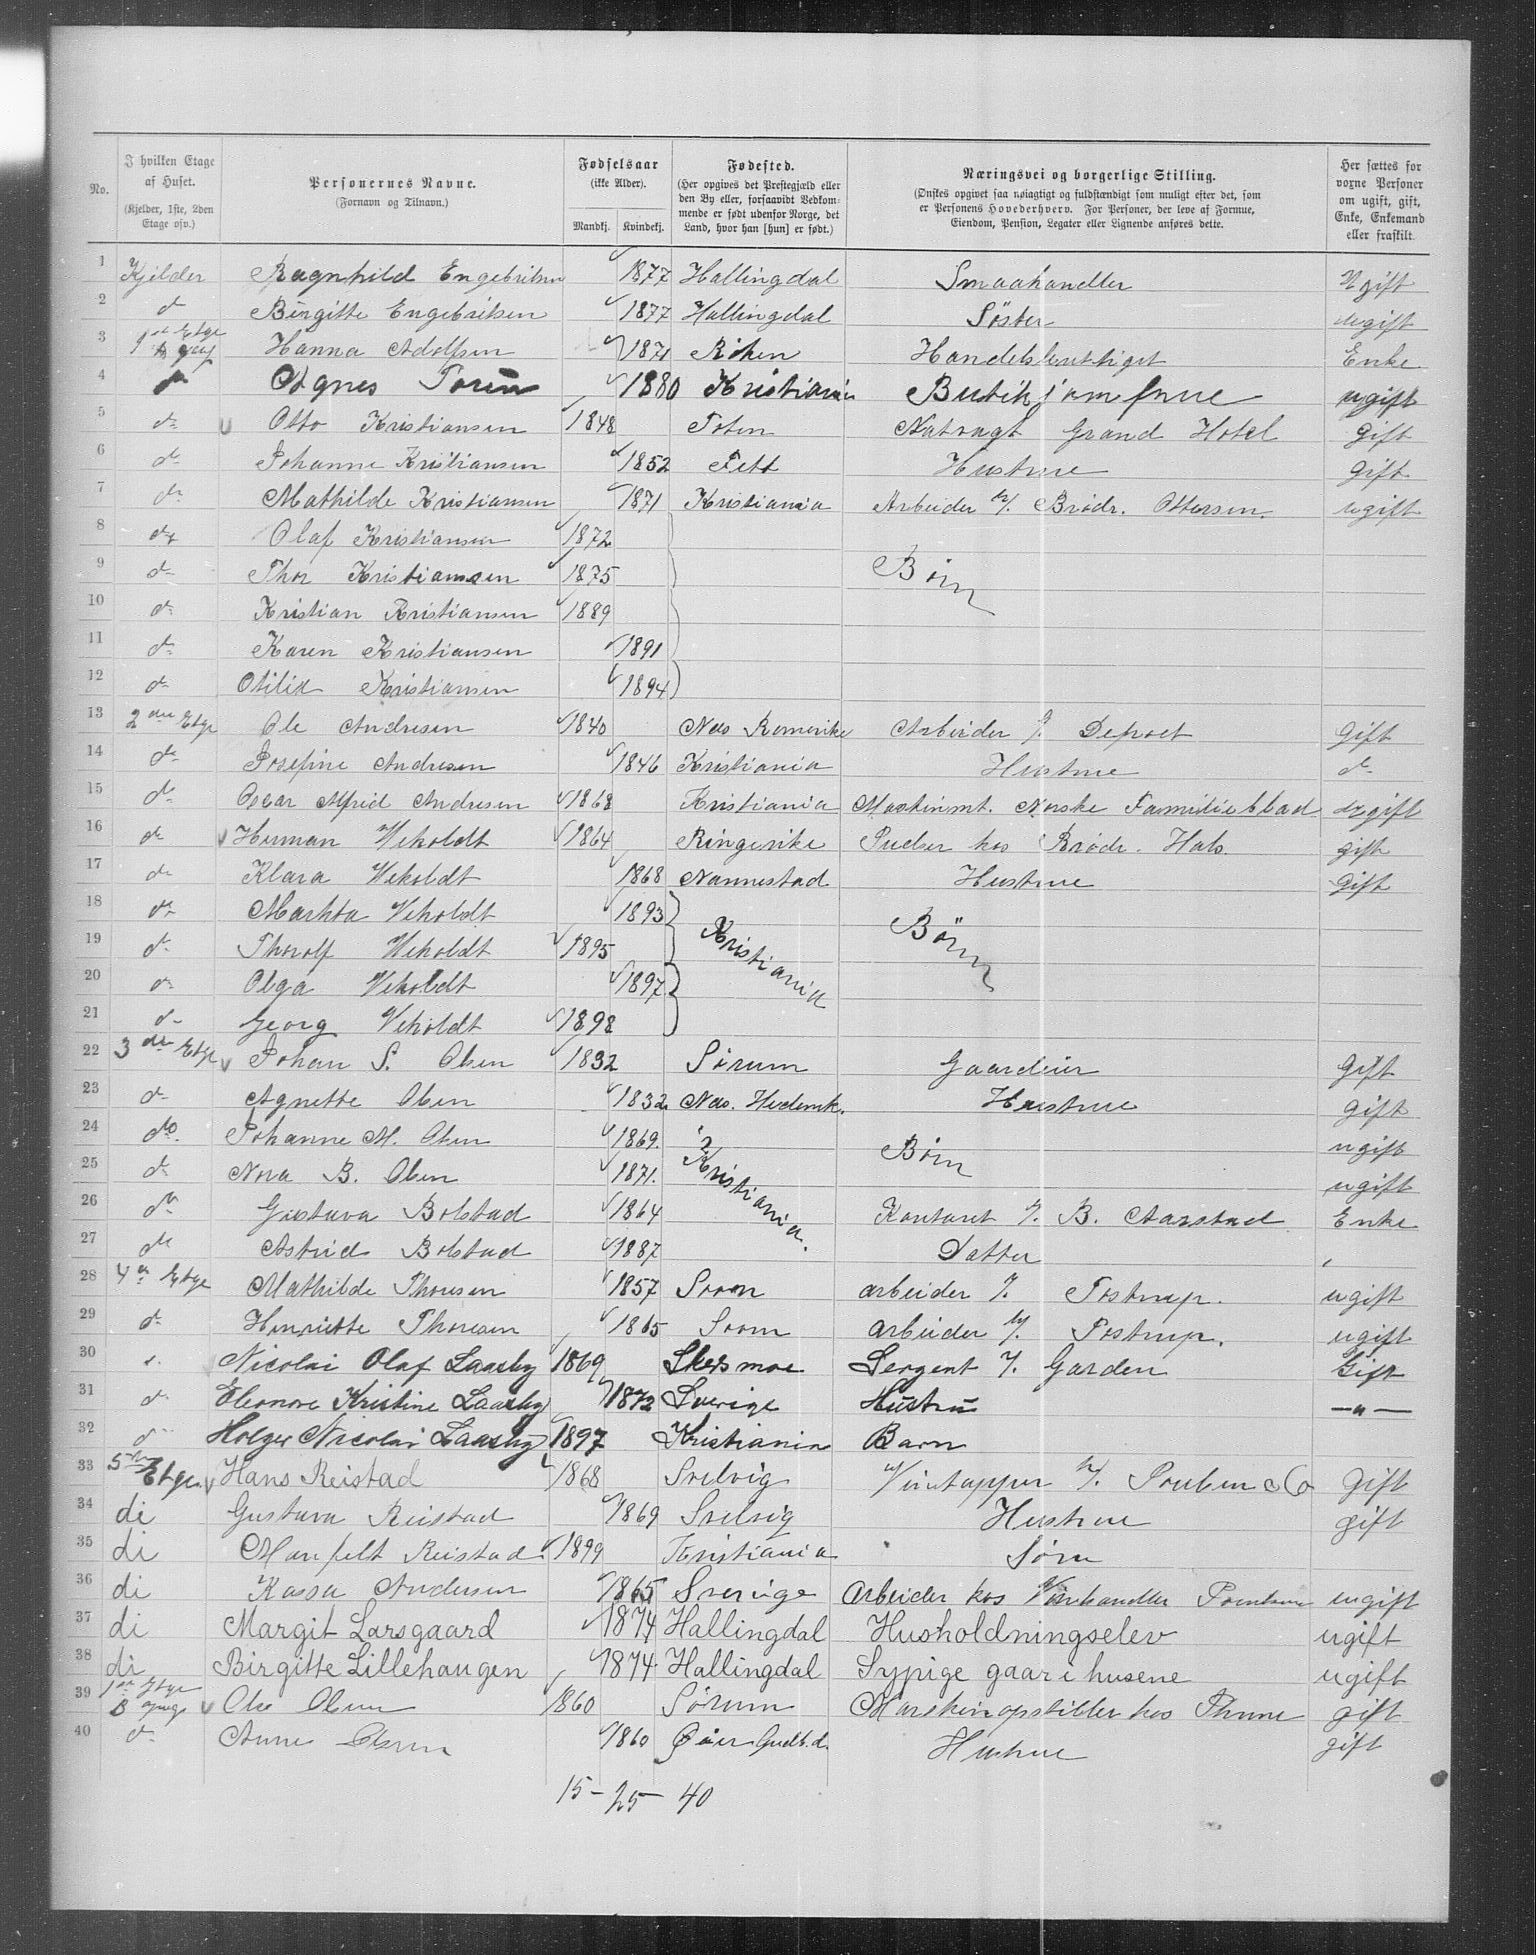 No.
I hvilken Etage af Huset. (Kjelder, 1ste, 2den Etage osv.)
Personernes Navne. (Fornavn og Tilnavn.)
Fødselsaar (ikke Alder). Mandkj. Kvindekj.
Fødested. (Her opgives det Prestegjæld eller den By eller, forsaavidt Vedkommende er født udenfor Norge, det Land, hvor han [hun] er født.)
Næringsvei og borgerlige Stilling. (Ønskes opgivet saa nøiagtigt og fuldstændigt som muligt efter det, som er Personens Hovederhverv. For Personer, der leve af Formue, Eiendom, Pension, Legater eller Lignende anføres dette.
Her sættes for voxne Personer om ugift, gift, Enke, Enkemand eller fraskilt.
1 Kjelder Ragnhild Engebritsen 1877 Hallingdal Smaahandler Ugift
2 d Birgitte Engebritsen 1877 Hallingdal Søster ugift
3 1st Etge Hanna Adolfsen 1871 Røken Handelsberettiget Enke
4 Agnes Toren 1880 Kristiania Butikjomfrue ugift
5 do Otto Kristiansen 1848 Toten Natvagt Grand Hotel Gift
6 do Johanne Kristiansen 1852 Fett Hustrue gift
7 do Mathilde Kristiansen 1871 Kristiania Arbeider v/. Brødr. Ottersen ugift
8 do Olaf Kristiansen 1872
9 do Thor Kristiansen 1875 Børn
10 do Kristian Kristiansen 1889
11 do Karen Kristiansen 1891
12 do Otilie Kristiansen 1894
13 2den Etge Ole Andresen 1840 Nes Romerike Arbeider /. Depoet gift
14 do Josefine Andresen 1846 Kristiania Hustrue do
15 do Oscar Alfrid Andresen 1868 Kristiania Maskinmt. Norske Familieblad ugift
16 do Herman Veholdt 1864 Ringerike Pudser hos Brødr. Hals. gift
17 do Klara Veholdt 1868 Nannestad Hustrue gift
18 do Martha Veholdt 1893
19 do Thorolf Veholdt 1895 Kristiania Børn
20 do Olga Veholdt 1897
21 do Georg Veholdt 1898
22 3die Etge Johan S. Olsen 1832 Sørum Gaardeier gift
23 do Agnette Olsen 1832 Nes. Hedemk. Hustrue gift
24 do. Johanne M. Olsen 1869. i Børn ugift
25 do Nora B. Olsen 1871. Kristiania. ugift
26 do Gustava Bolstad 1864 Kontoret /. B. Aarstad Enke
27 do Astrid Bolstad 1887 Datter
28 4de Etge Mathilde Thoresen 1857 Soon arbeider /. Tostrup. ugift
29 do Henriette Thoresen 1865 Soon arbeider v/. Tostrup. ugift
30 Nicolai Olaf Laasby 1869 Skedsmoe Sergent /. Garden Gift
31 do Eleonore Kristine Laasby 1872 Sverige Hustru —"—
32 do Holger Nicolai Laasby 1897 Kristiania Barn
33 5te Etge Hans Reistad 1868 Svelvig Vintapper v/. Poulsen & Co gift
34 di Gustava Reistad 1869 Svelvig Hustrue gift
35 di Manfelt Reistad 1899 Kristiania Søn
36 di Kassa Andersen 1865 Sverige Arbeider hos Vinhandler Poulsen ugift
37 di Margit Larsgaard 1874 Hallingdal Husholdningselev ugift
38 di Birgitte Lillehaugen 1874 Hallingdal Sypige gaar i husene ugift
39 1ste Etge B opng Ole Olsen 1860 Sørum Maskinopstiller hos Thune gift
40 do Anne Olsen 1860 Øier Gudb.d. Hustrue gift
15 - 25 - 40